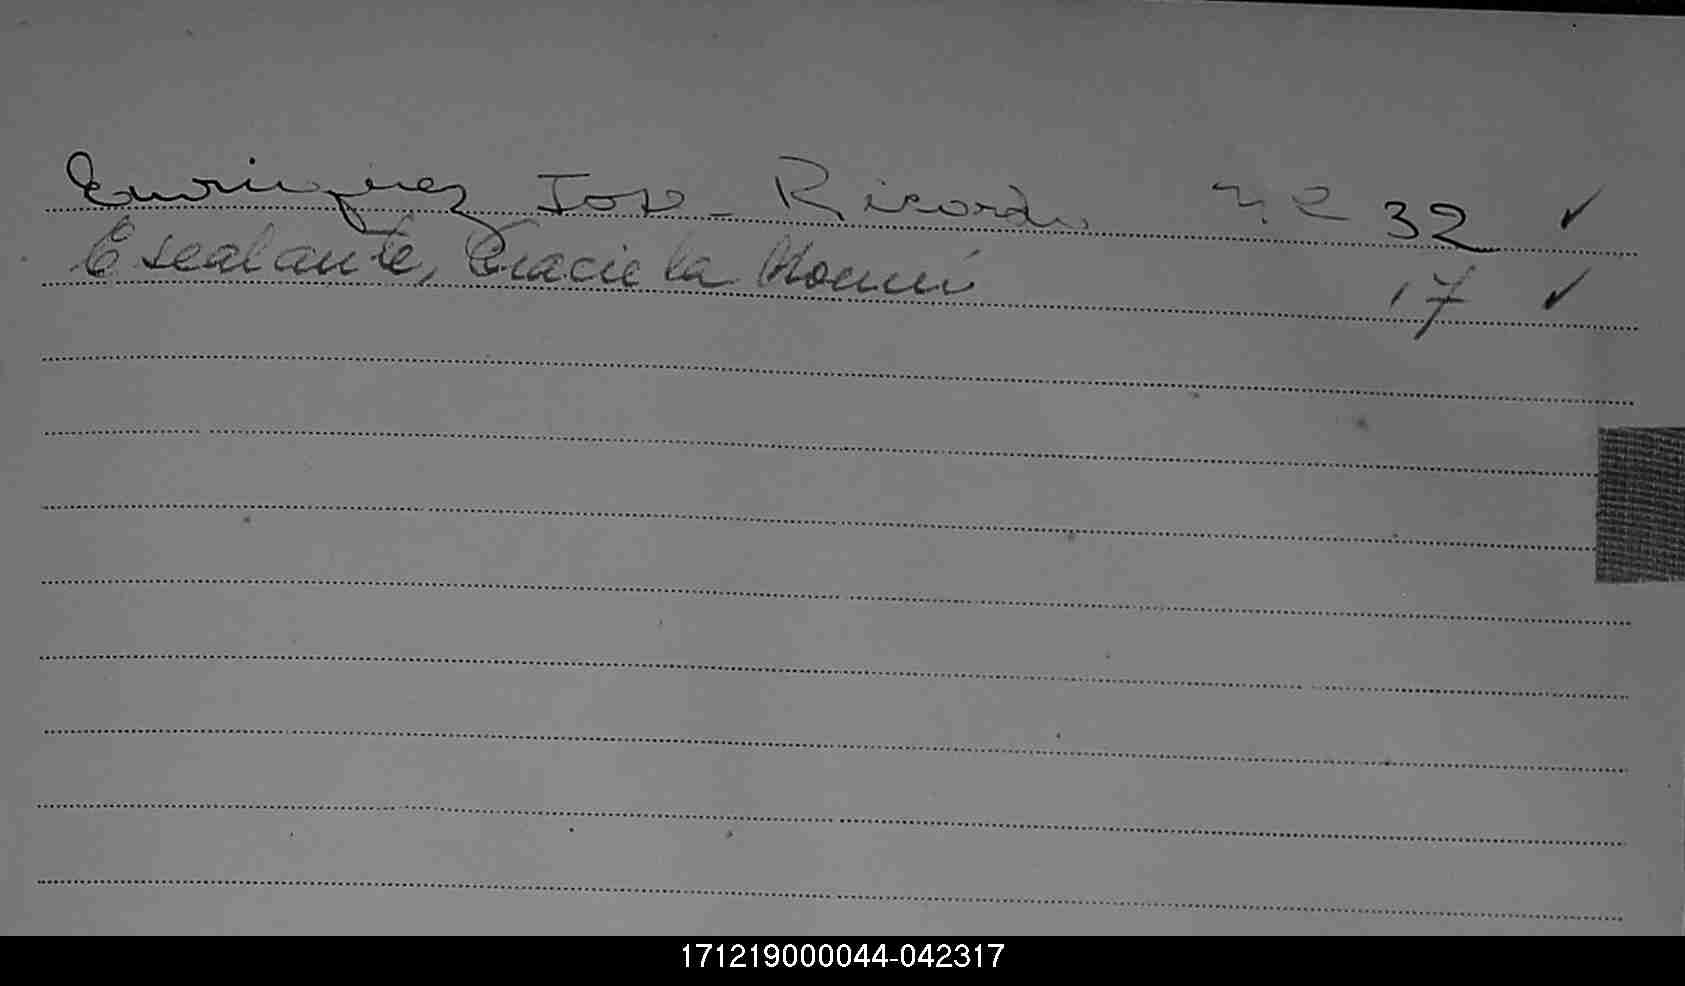 Enriquez Jose Ricardo 32 ✓
Escalante, Graciela Noemí 17 ✓
171219000044-042317